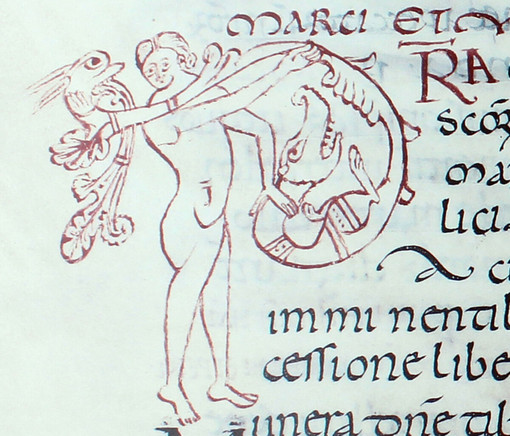 MARCI ET M
RA
scoꝝ
ma
lici
a c
imminentib
cessione libe
munera dn̄e tib